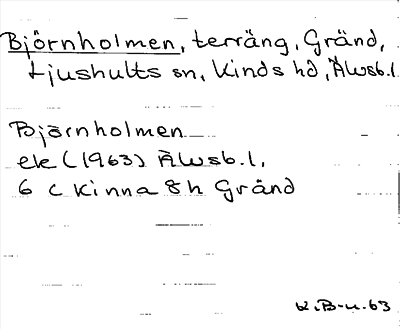 Björnholmen, terräng, Gränd,
Ljushults sn, Kinds hd, Älvsb.l.
Björnholmen
ek (1963) Älvsb.l,
6 c Kinna 8h Gränd
K.B-n.63